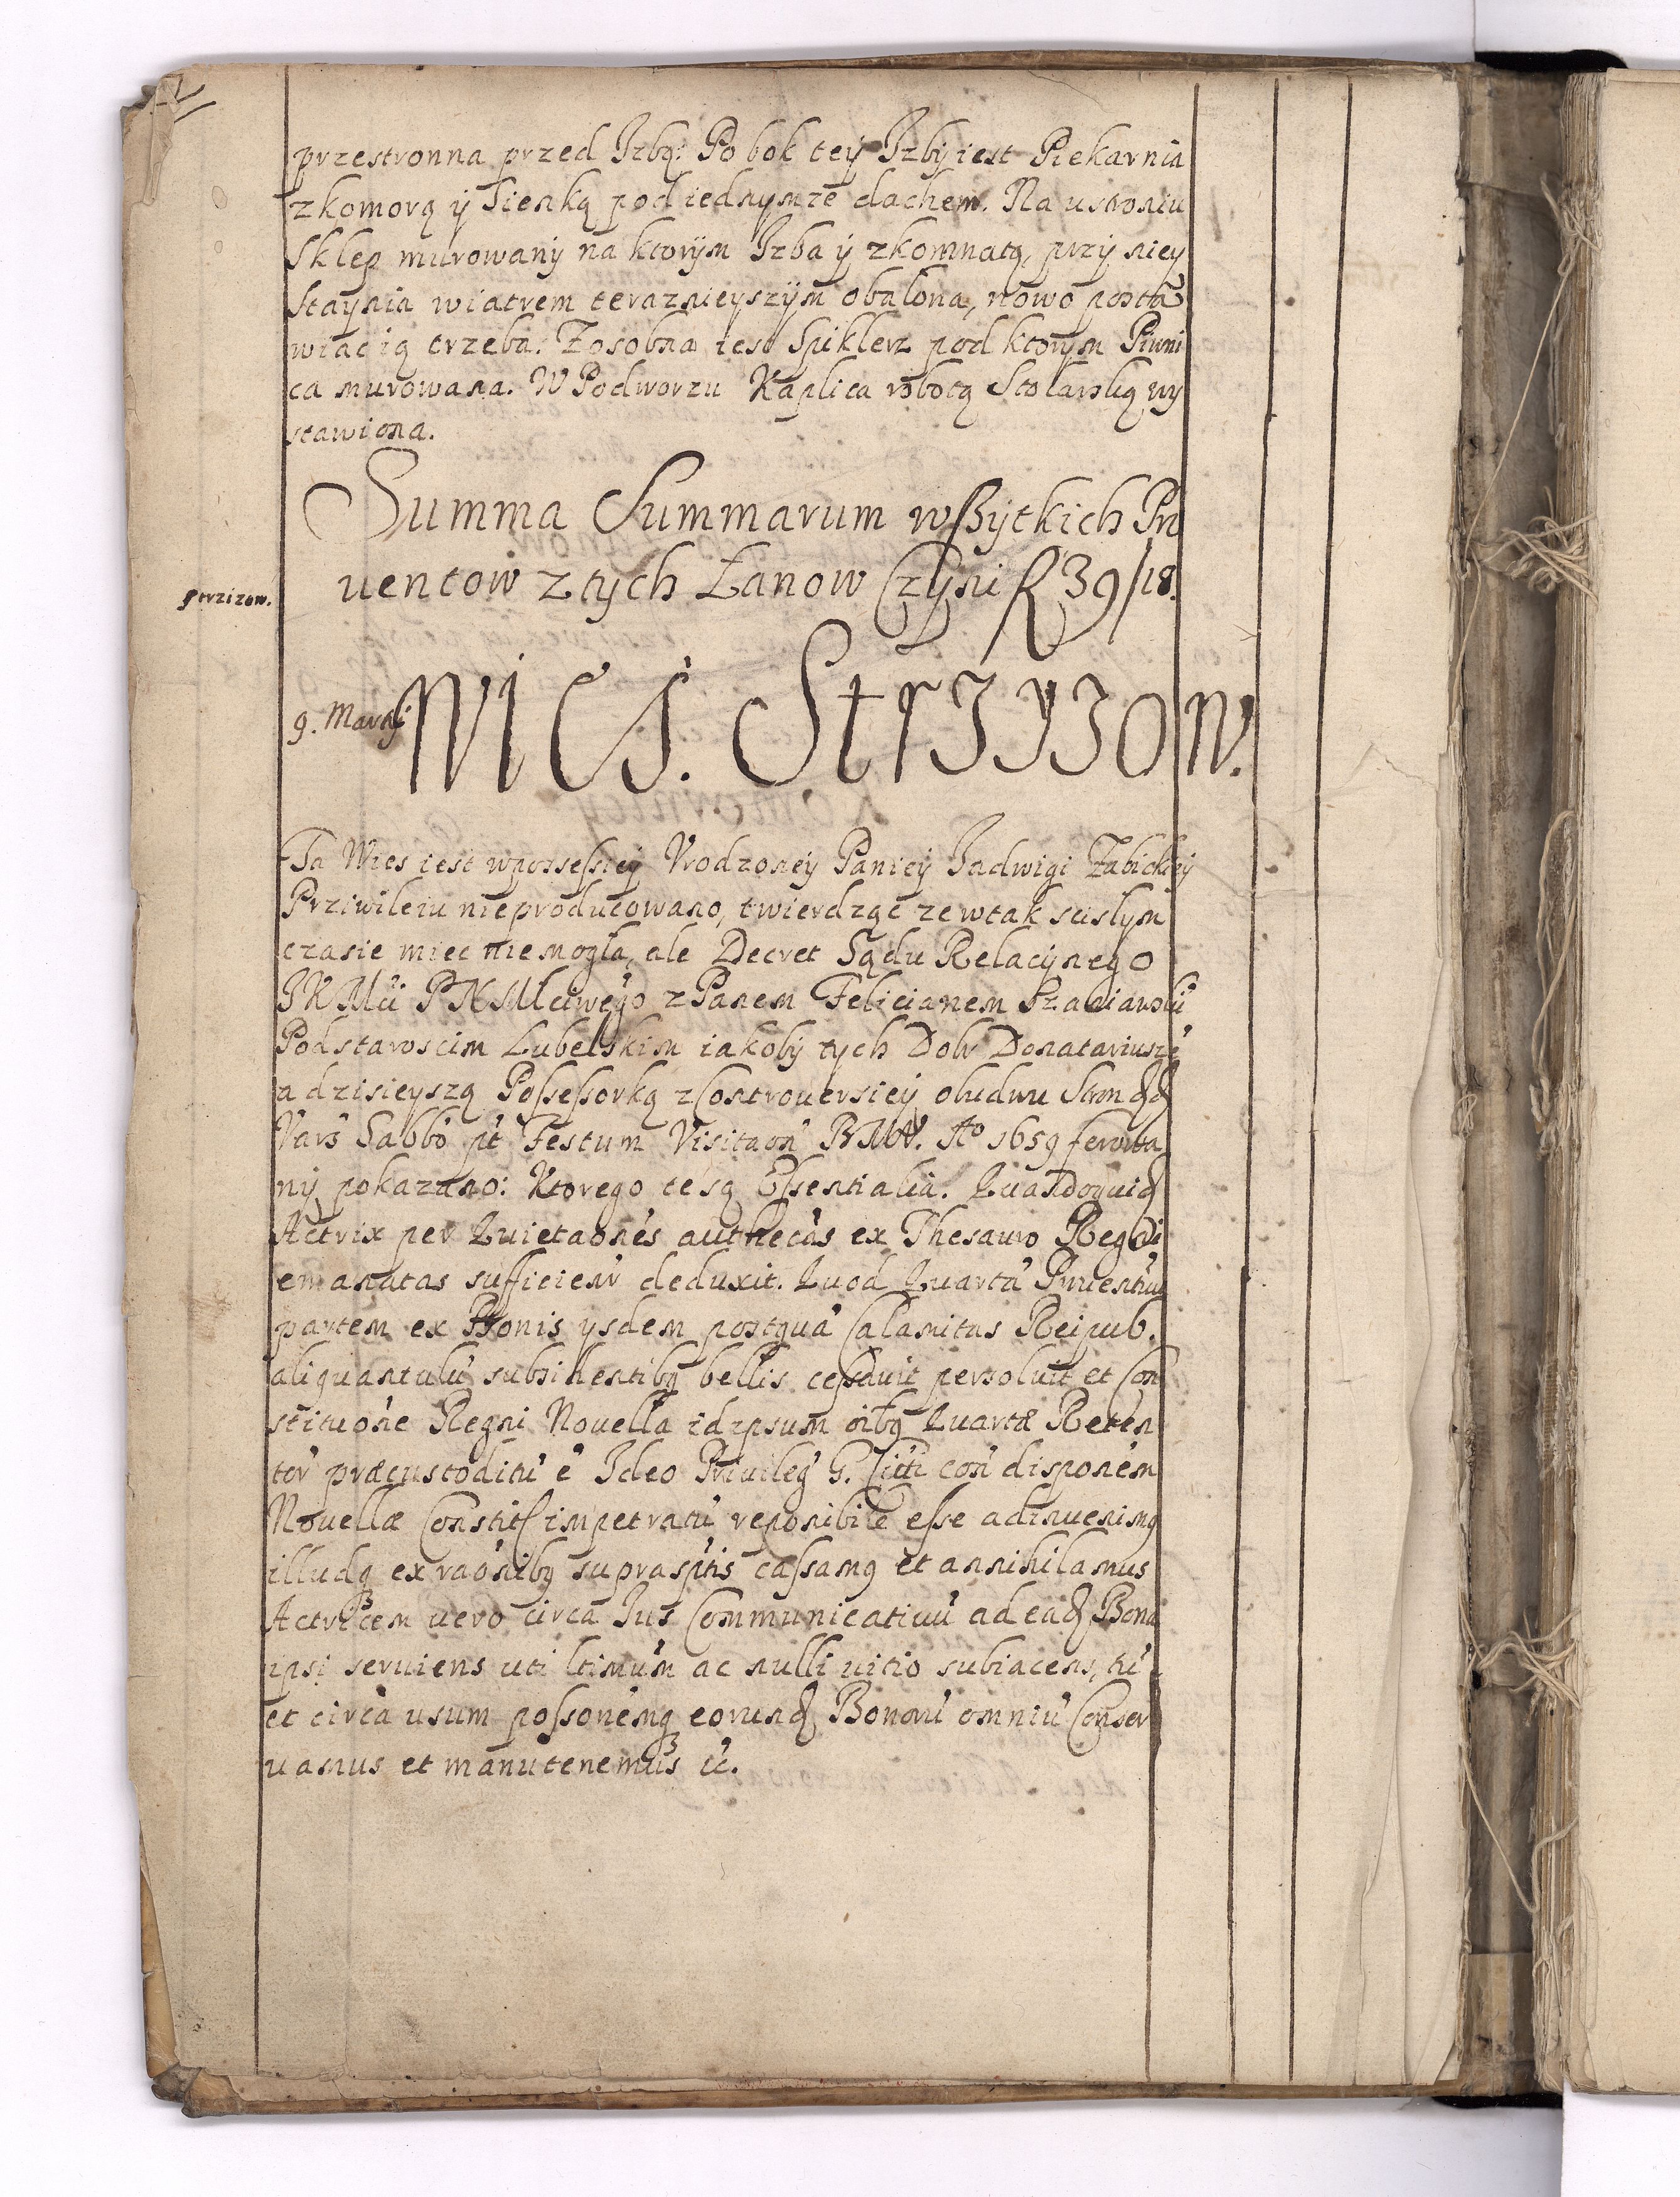 przestronna przed Izbą: Po bok tey Izby iest Piekarnia
z komorą y Sienką pod iednymze dachem. Na ustroniu
Sklep murowany na ktorym Izba y z komnatą, przy niey
Staynia wiatrem teraznieyszym obalona, nowo posta
wiac ią trzeba. Zosobna iest Spiklerz pod ktorym Piwni
ca murowana. W Podworzu Kaplica robotą Stolarską wy
stawiona.
Summa Summarum wszytkich Pro
uentow z tych Łanow Czyni f 39/18.
9. Martij Wieś. Strzyzow.
Ta Wies iest w possessiey Vrodzoney Paniey Jadwigi Zabickiey
Przywileiu nie producowano, twierdząc ze w tak scisłym
czasie miec nie mogła, ale Decret Sądu Relacyinego
JKMci PNMłciwego z Panem Felicianem Szaniawskĩ
Podstaroscim Lubelskim iakoby tych Dobr Donatariuszẽ
a dzisieyszą Possessorką z Controuersiey obudwu Stron
Vars Sabbo pt Festum Visitaon BMV. Ao 1659 ferowa
ny pokazano: Ktorego te są Essentialia. Quandoquid
Actrix per Quietaones authecas ex Thesauro Regni
emanatas sufficienr deduxit. Quod Quartã Prouentuũ
partem ex Bonis ysdem postquã Calamitas Reipub.
aliquantulũ subsidentibq bellis cessauit persoluit et Con
stituone Regni Nouella idipsum oibq Quartæ Reten
tor præcustoditũ ẽ Ideo Priuileg G. Citti con disponem
Nouellæ Constit impetratũ reponibile esse adinuenimq
illudq ex raonibq suprasptis cassamq et annihilamus
Actricem uero circa Jus Communicatiuũ ad ead Bona
ipsi seruiens uti ltimum ac nulli uitio subiacens, tũ
et circa usum possonemq eorund Bonorũ omniũ Conser
uamus et manutenemus ic.